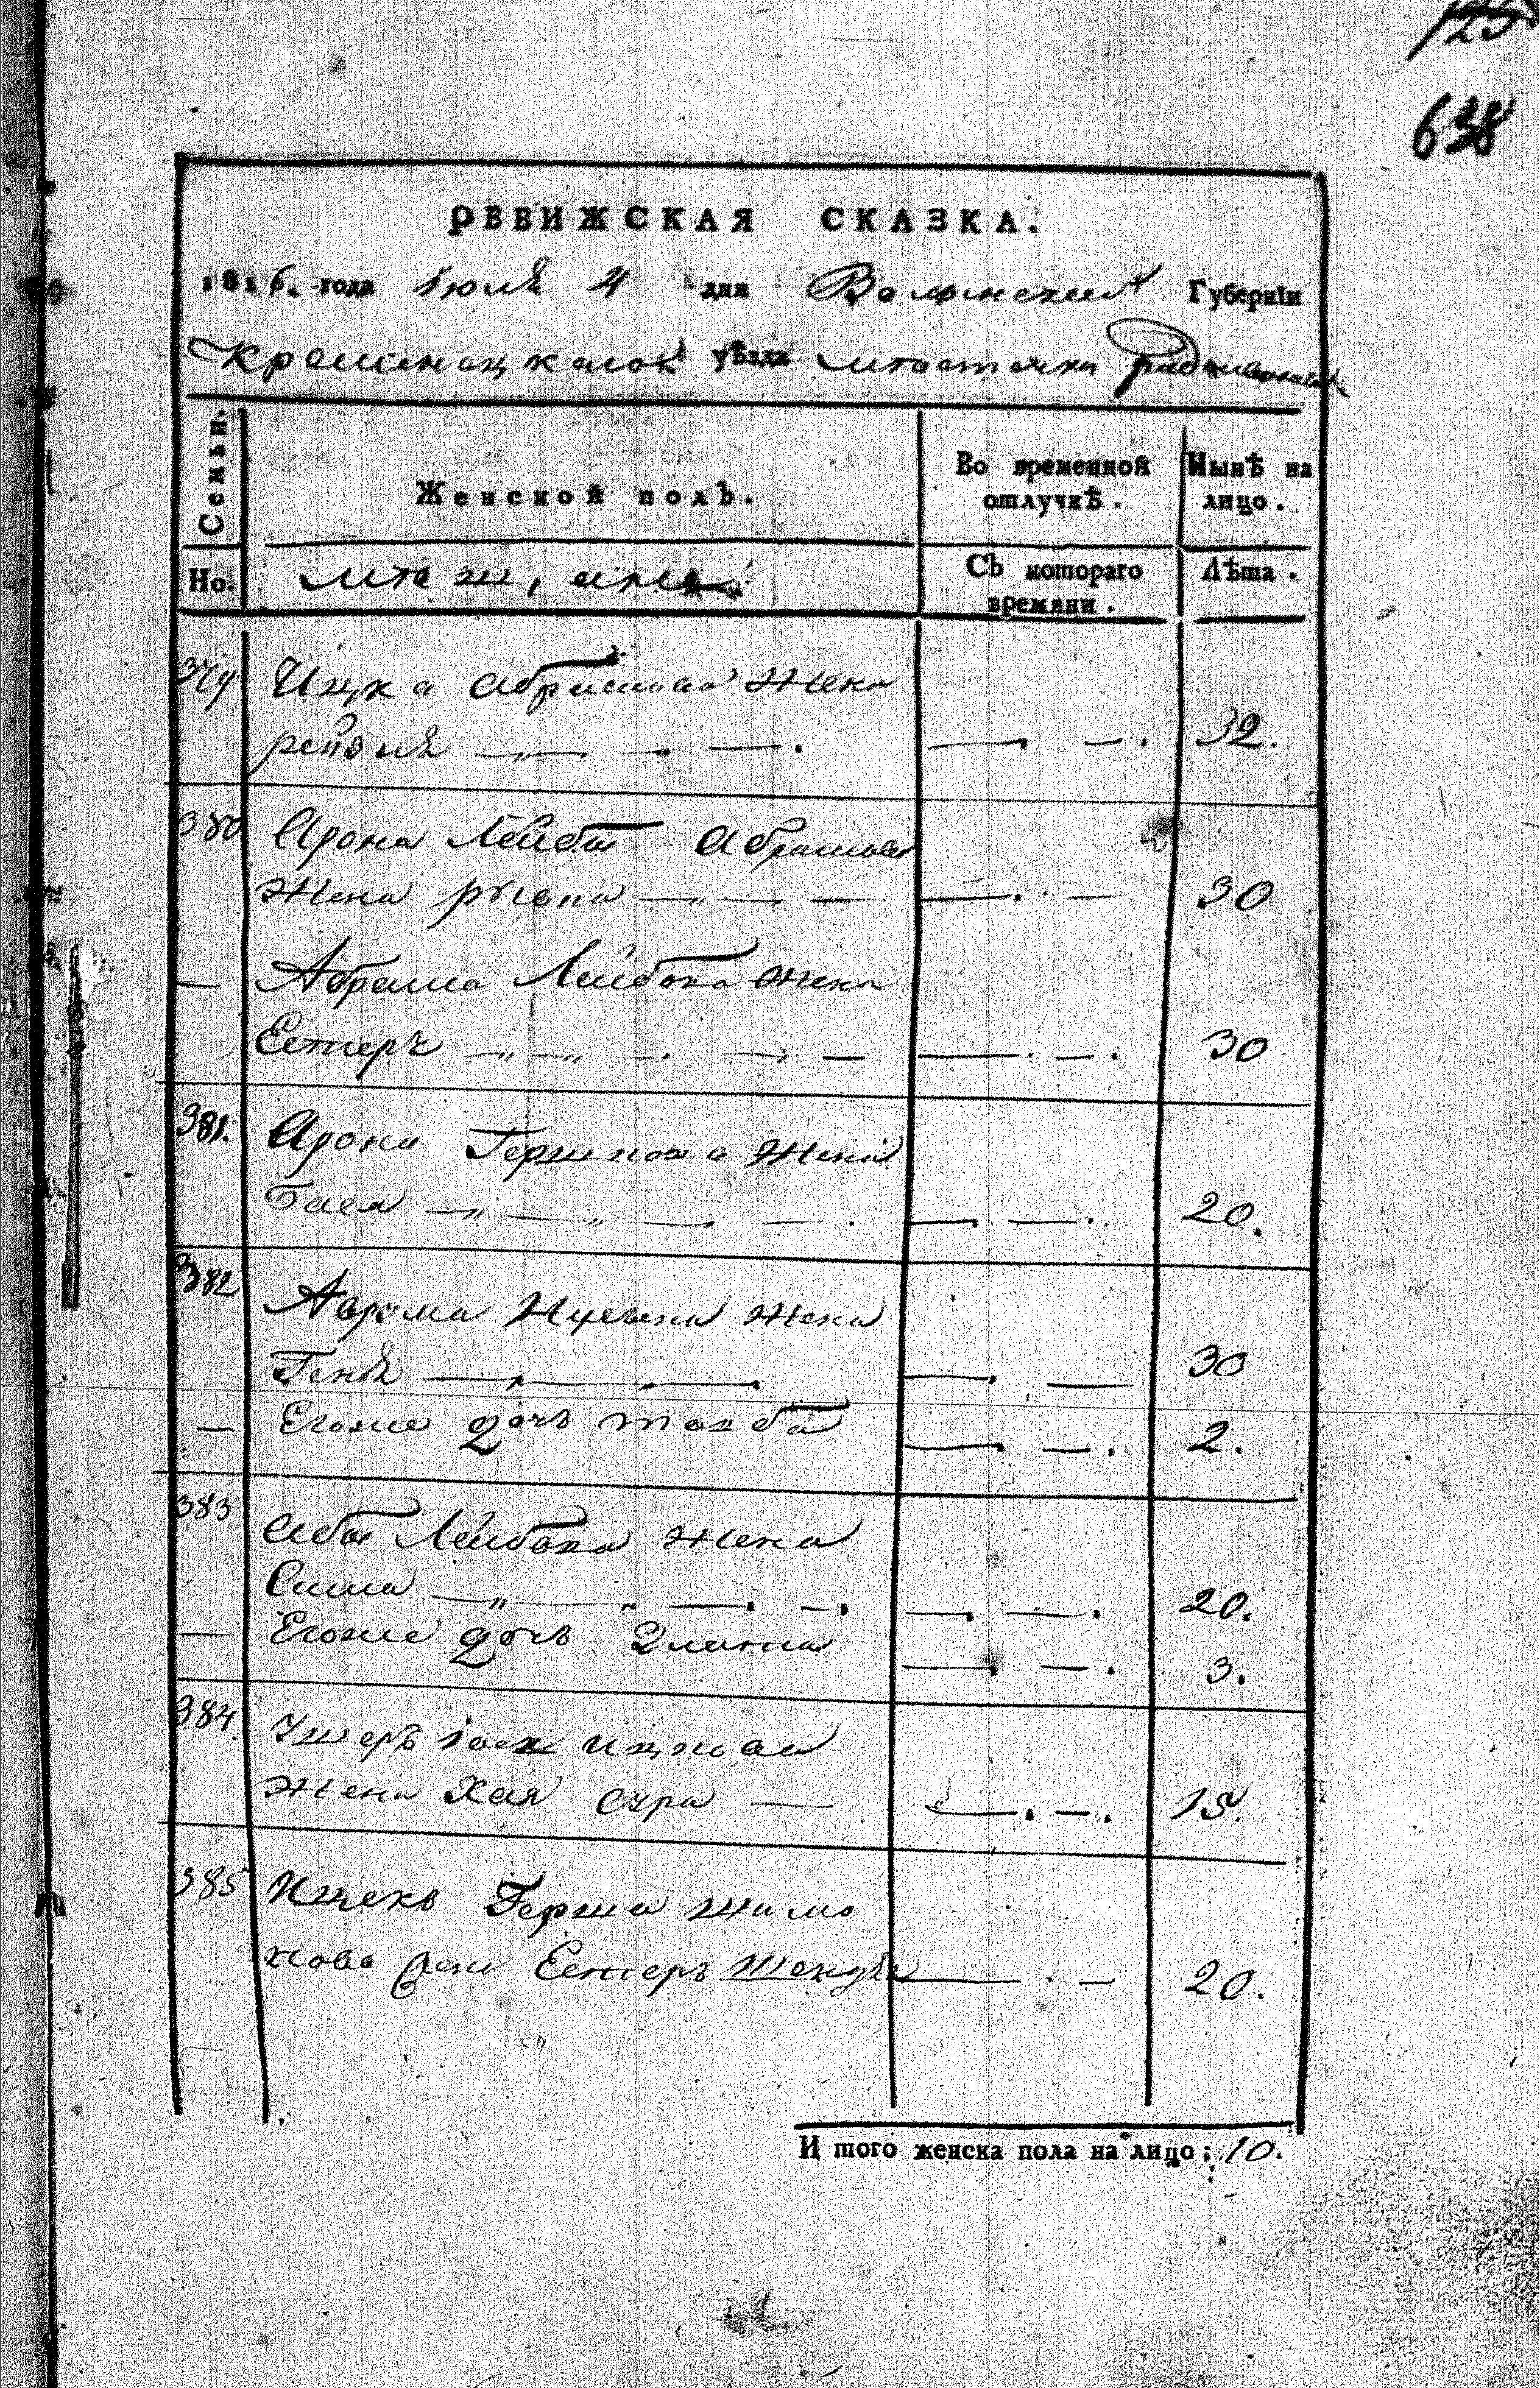 125
638
РЕВИЖСКАЯ СКАЗКА.
1816. года Июля 4 дня Волынской Губерніи
Кременецкаго уѣзда местечка Радзивилова
Семьи.
Женской полъ.
Во временной
отлучкѣ.
Нынѣ на
лицо.
Но.
Съ котораго
времяни.
Лѣта.
379 Ицка Абрамова Жена
рейзя 32.
380 Арона Лейбы Абрамова
Жена 30
— Абрама Лейбова жена
Естеръ 30
381. Арона Гершкова Жена
Бася 20.
382 Аврума Жена
Геня 30
— Егоже дочь тауба 2.
383 Абы Лейбова жена
Сима 20.
— Егоже дочь Злата 3.
384. Ушеръ Ицкова
жена Хая Сура 15.
385 Ицекъ Герша Шимо
нова Естеръ 20.
И того женска пола на лицо: 10.